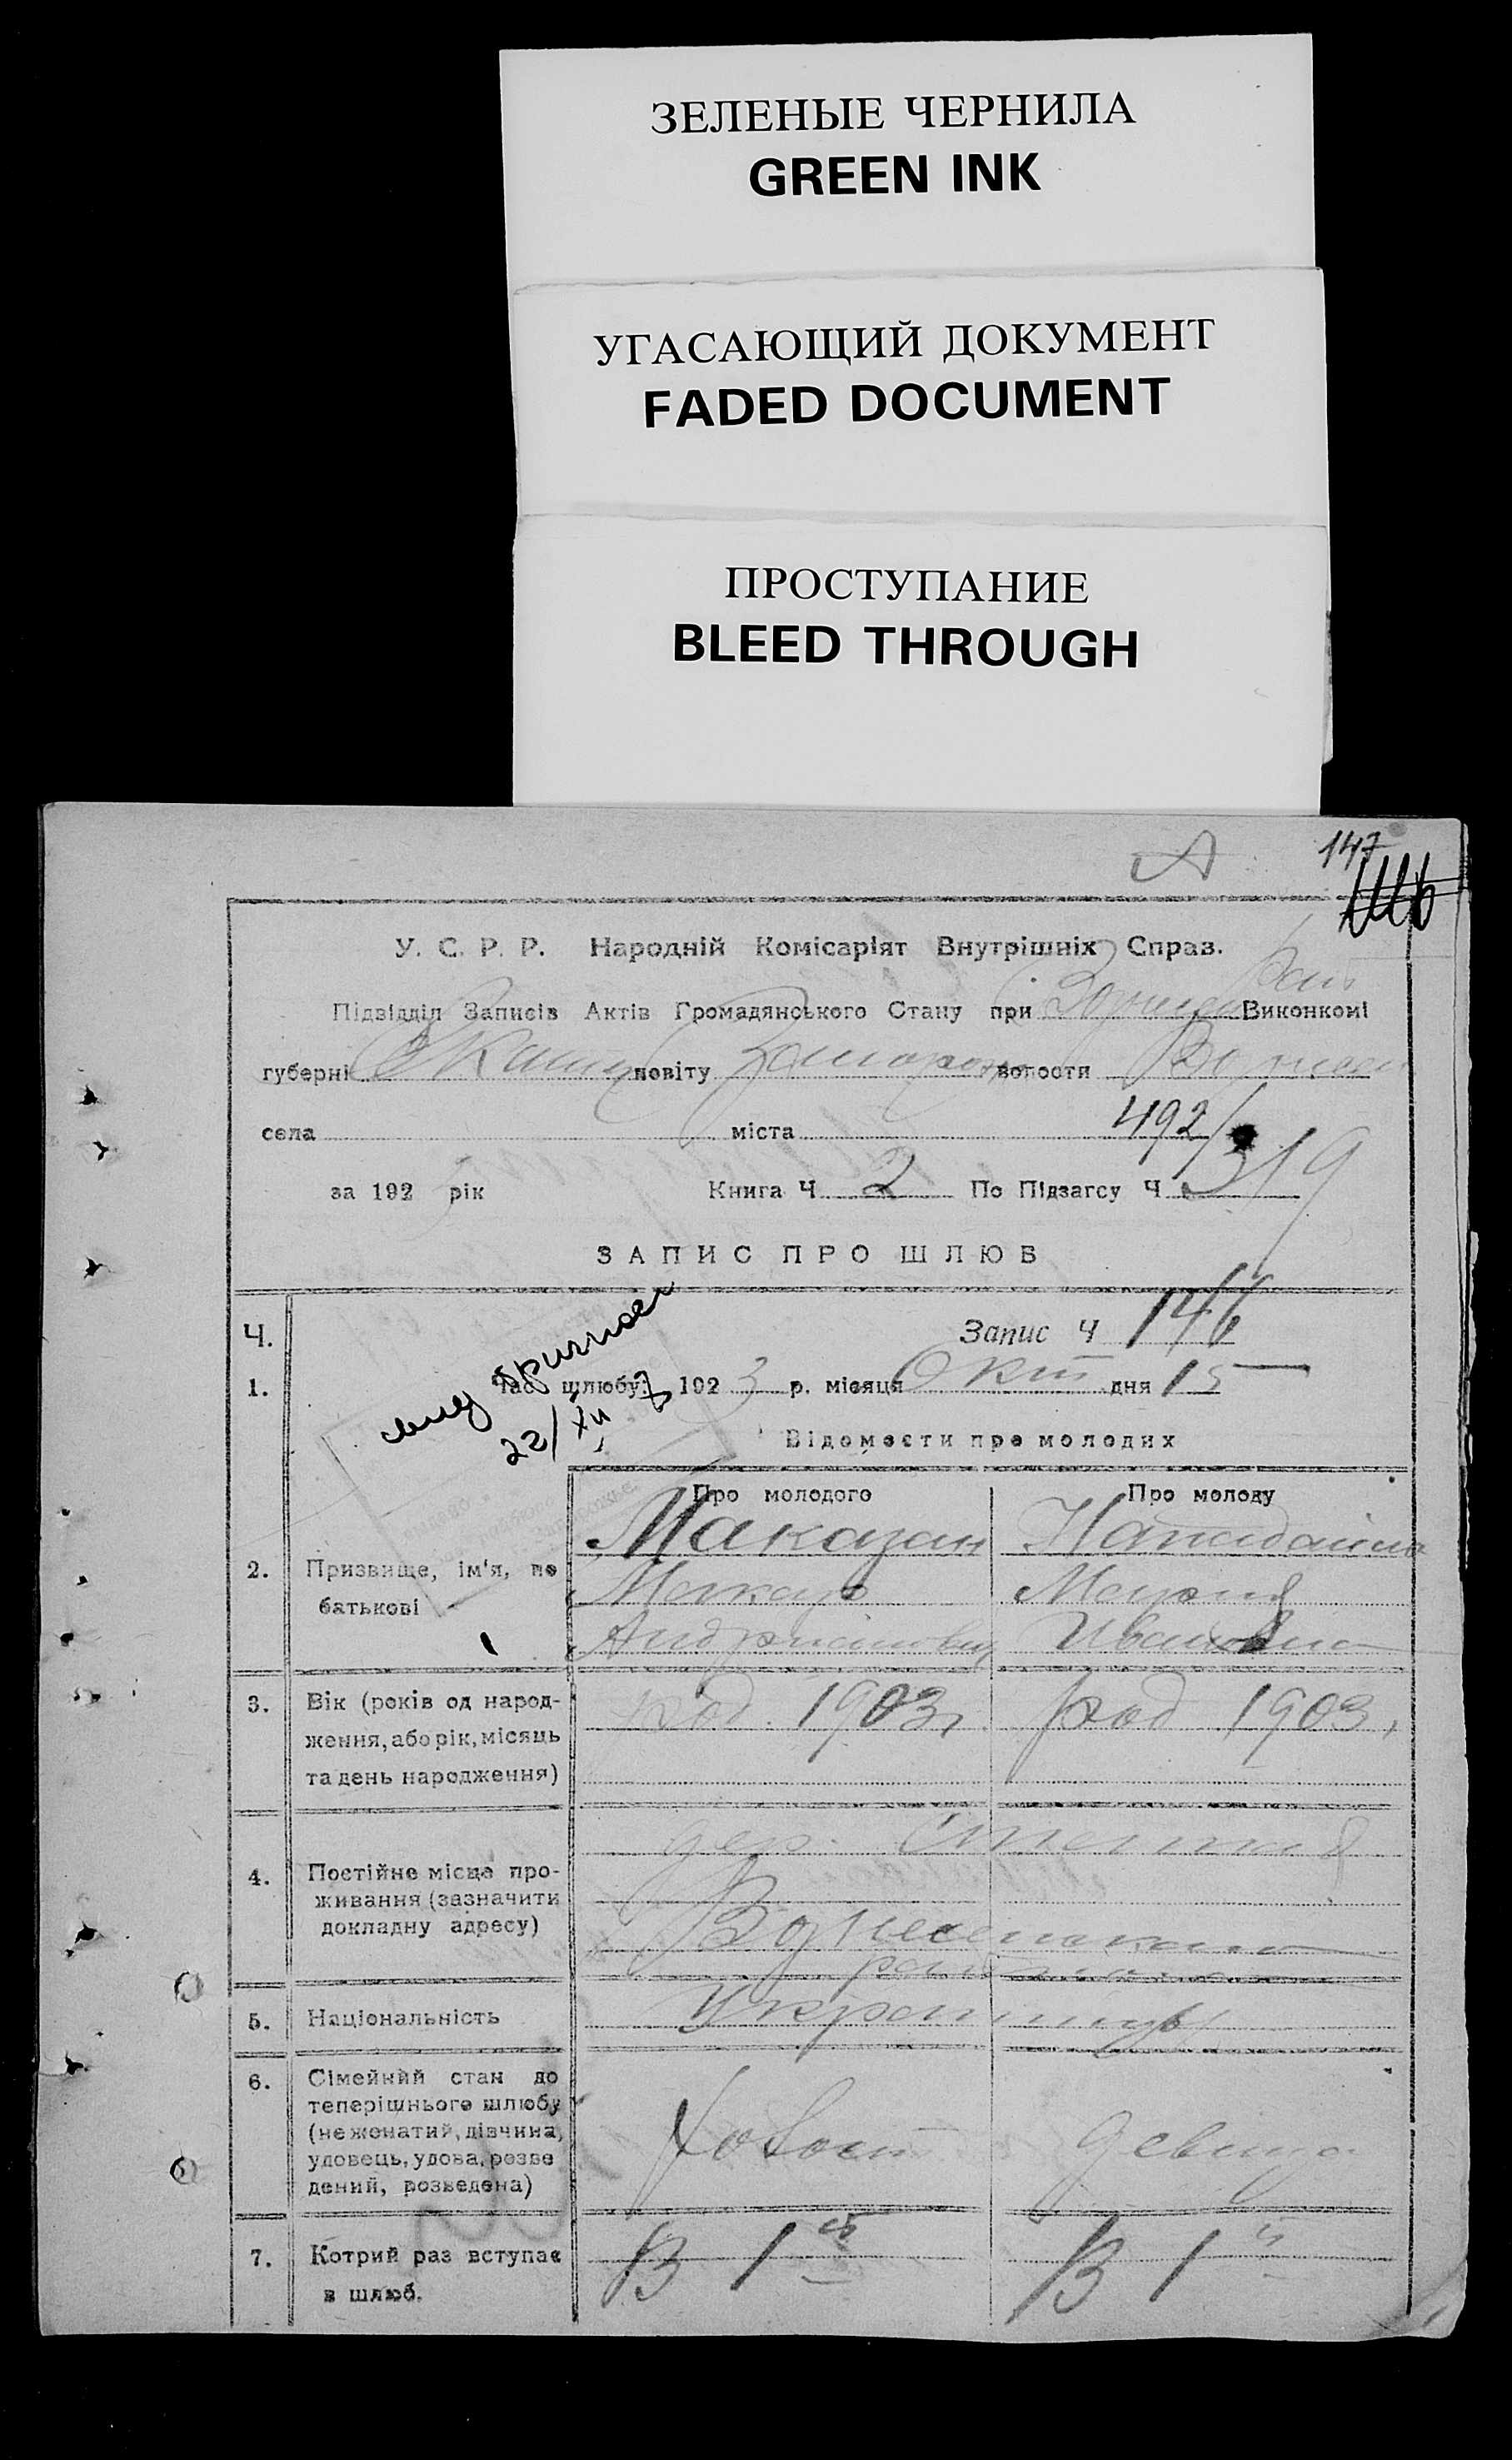 ЗЕЛЕНЫЕ ЧЕРНИЛА
GREEN INK
УГАСАЮЩИЙ ДОКУМЕНТ
FADED DOCUMENT
ПРОСТУПАНИЕ
BLEED THROUGH
А 147
У. С. Р. Р. Народній Комісаріят Внутрішніх Справ.
Підвідділ Записів Актів Громадянського Стану при Виконкомі
губерні повіту волости
села міста 492/
за 192 рік Книга Ч 2 По Підзагсу Ч 319
ЗАПИС ПРО ШЛЮБ
Ч. Запис Ч 146
1. Час шлюбу: 1923 р. місяця Окт дня 15
22/XII
Відомости про молодих
Про молодого Про молоду
Маказан
2. Призвище, ім'я, по Макар Мария
батькові Ивановна
3. Вік (років од народ- род. 1903 г. род 1903,
ження, або рік, місяць
та день народження)
дер.
4. Постійне місце про-
живання (зазначити
докладну адресу) Вознесенского
района
5. Національність Украинцы
6. Сімейний стан до
теперішнього шлюбу
(нежонатий, дівчина, Холост девица
удовець, удова, розве
дений, розведена)
7. Котрий раз вступає В 1й В 1й
в шлюб.